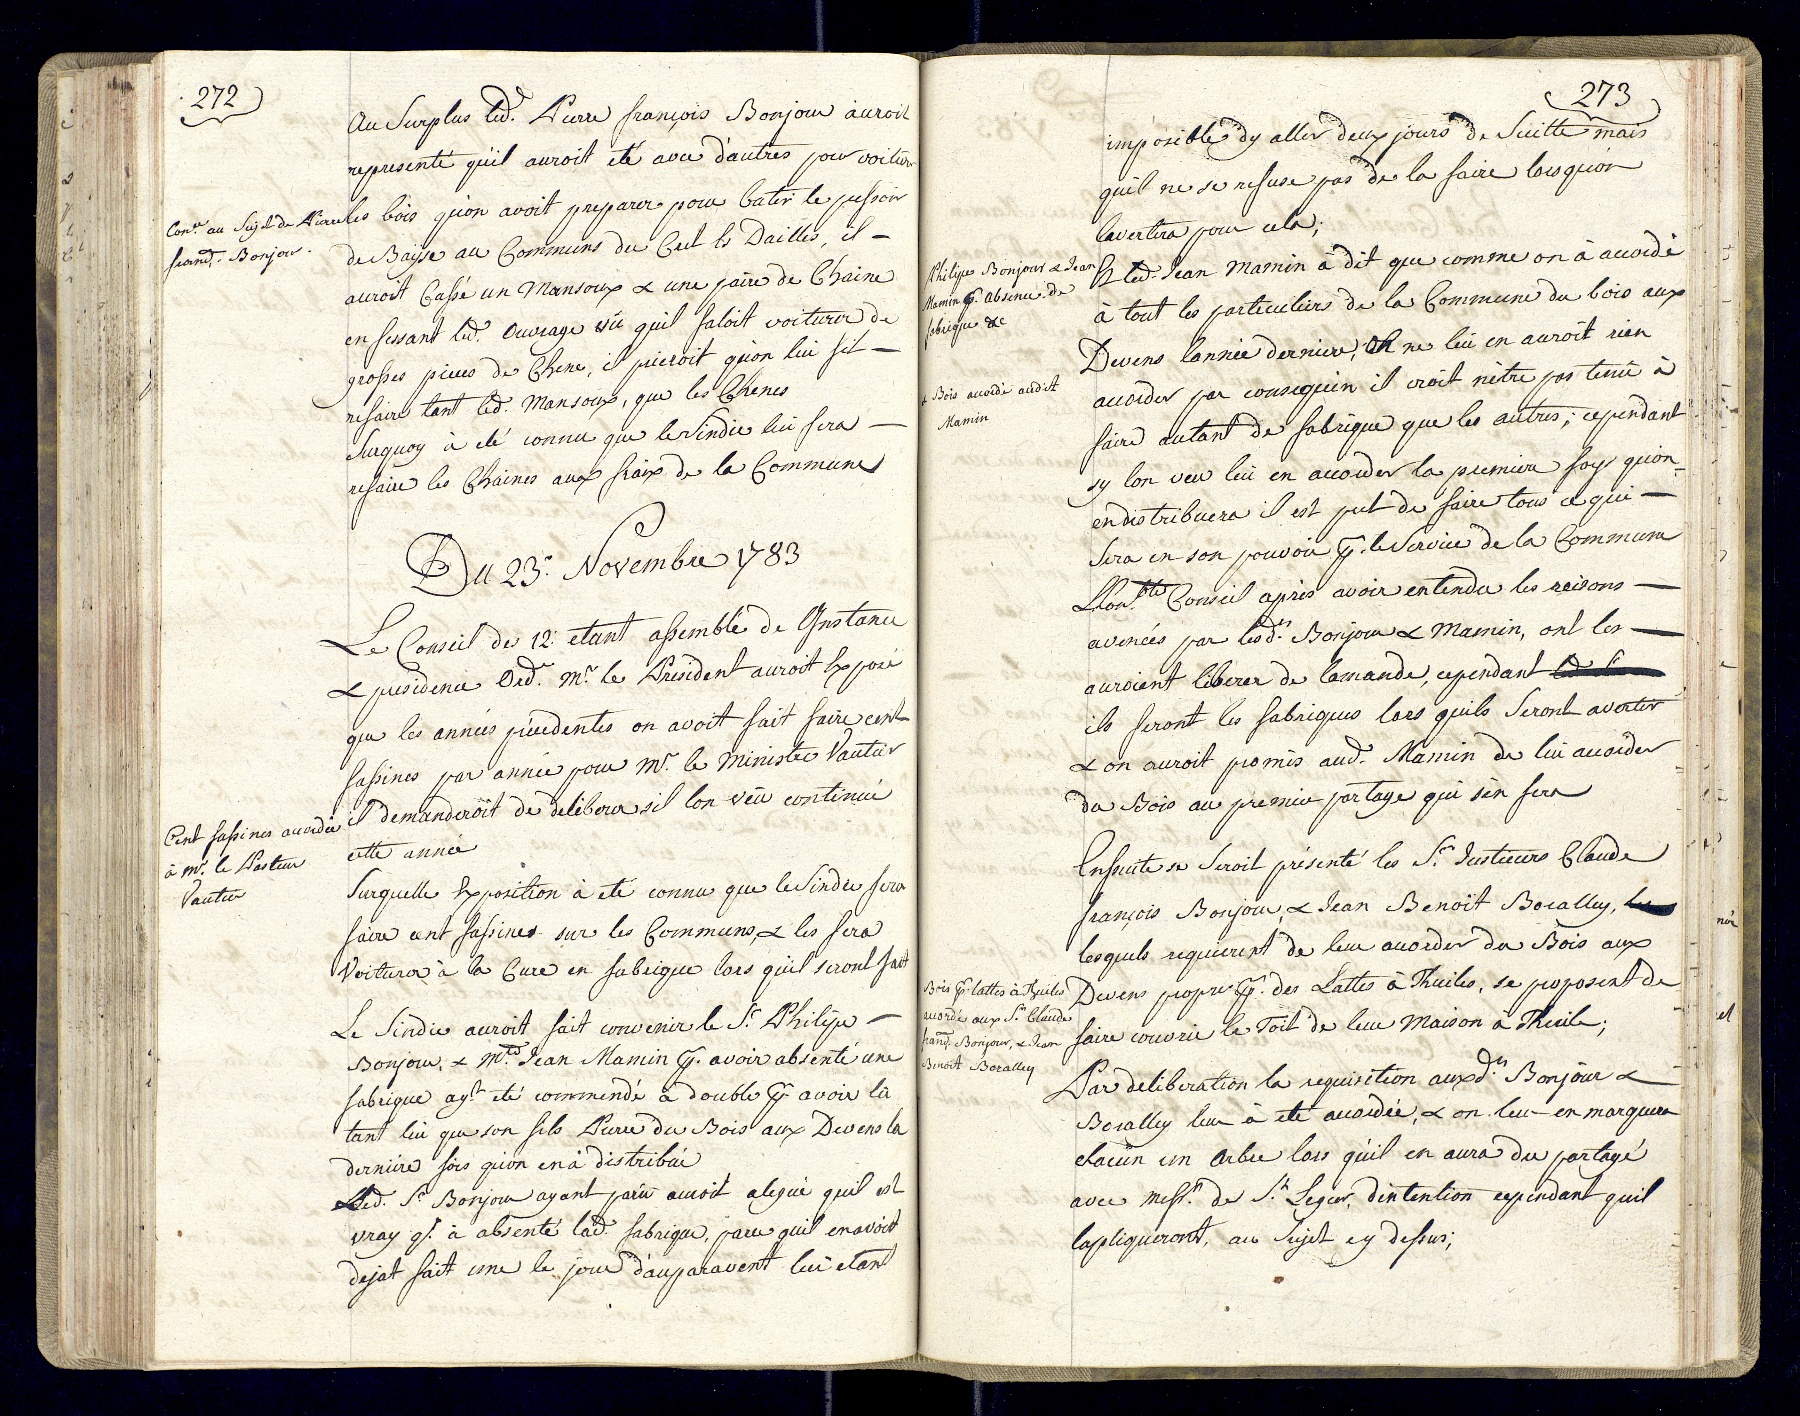 272
Au Surplus led. Pierre françois Bonjour auroit
representé qu'il auroit eté avec d'autres pour voiturer
Con.r au Sujet de Pierre
franç. Bonjour.
les bois qu'on avoit preparer pour batir le pressoir
de Baÿse au Communs du Cret ls Dailles, il —
auroit Cassé un Mansoux & une paire de Chaine
en fessant led. Ouvrage vû quil faloit voiturer de
grosses pieces de Chene, il prieroit qu'on lui fit —
refaire tant led. Mansoux, que les Chênes
Surquoy à eté connu que le Sindic lui fera —
refaire les Chaines aux fraix de la Commune
Du 23.e Novembre 1783
Le Conseil des 12: etant assemblé de Instance
& presidence Ord.e M.r le President auroit Exposé
que les années précédentes on avoit fait faire cent
fassines par année pour M.r le Ministre Vautier
il demanderoit de deliberer sil lon veu continué
cette année
Cent fassines accordée
à M.r le Pasteur
Vautier
Surquelle Exposition à eté connu que le Sindic fera
faire cent fassines sur les Communs, & les fera
Voiturer à la Cure en fabrique lors qu'il seront fait
Le Sindic auroit fait convenir le S.r Philipe —
Bonjour, & M.tre Jean Mamin p.r avoir absenté une
fabrique ay.t eté commendé a double p.r avoir lû
tant lui que son fils Pierre du Bois aux Devens la
derniére fois qu'on en à distribüé
Led. S.r Bonjour ayant parû auroit alegué quil est
vray q.l à absenté lad. fabrique, parce quil en avoit
dejat fait une le jour d'auparavent lui etant
273
imposible dy aller deux jours de Suitte mais
quil ne se refuse pas de la faire lorsquon
lavertira pour cela;
Philipe Bonjour & Jean
Mamin p.r Absence de
fabrique &c
Et led. Jean Mamin à dit que comme on à accordé
à tout les particuliers de la Commune du bois aux
Devens lannée derniere, On ne lui en auroit rien
& Bois accordé audit
Mamin
accorder par consequein il croit nètre pas tenü à
faire autant de fabrique que les autres; cependant
sy lon veu lui en accorder la premiere foys quon
en distribuera il est pret de faire tous ce qui —
Sera en son pouvoir p.r le Service de la Commune
L'hon.ble Conseil après avoir entendu les raisons —
avencés par lesd.ts Bonjour & Mamin, ont les —
auroient liberer de lamande, cependant
ils feront les fabriques lors quils Seront avertir
& on auroit promis aud. Mamin de lui accorder
du Bois au premier partage qui sèn fera
Ensuite se Seroit présenté les S.rs Justiciers Claude
françois Bonjour, & Jean Benoït Boralley,
lesquels requierent de leur accorder du Bois aux
Bois p.r lattes à Thuiles
accordé aux S.rs Claude
franç. Bonjour, & Jean
Benoit Boralley
Devens propre p.r des Lattes à Thuiles, se proposent de
faire couvrir le Toit de leur Maison à Thuile;
Par deliberation la requisition auxd.ts Bonjour &
Boralley leur à eté accordée, & on leur en marquera
chacun un Arbre lors qu'il en aura du partagé
avec mess.rs de S.t Leger, d'intention cependant quil
lapliqueront, au Sujet cy dessus;